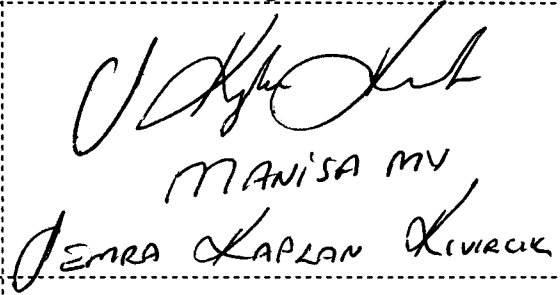 MANİSA MV
SEMRA KAPLAN KIVIRCIK